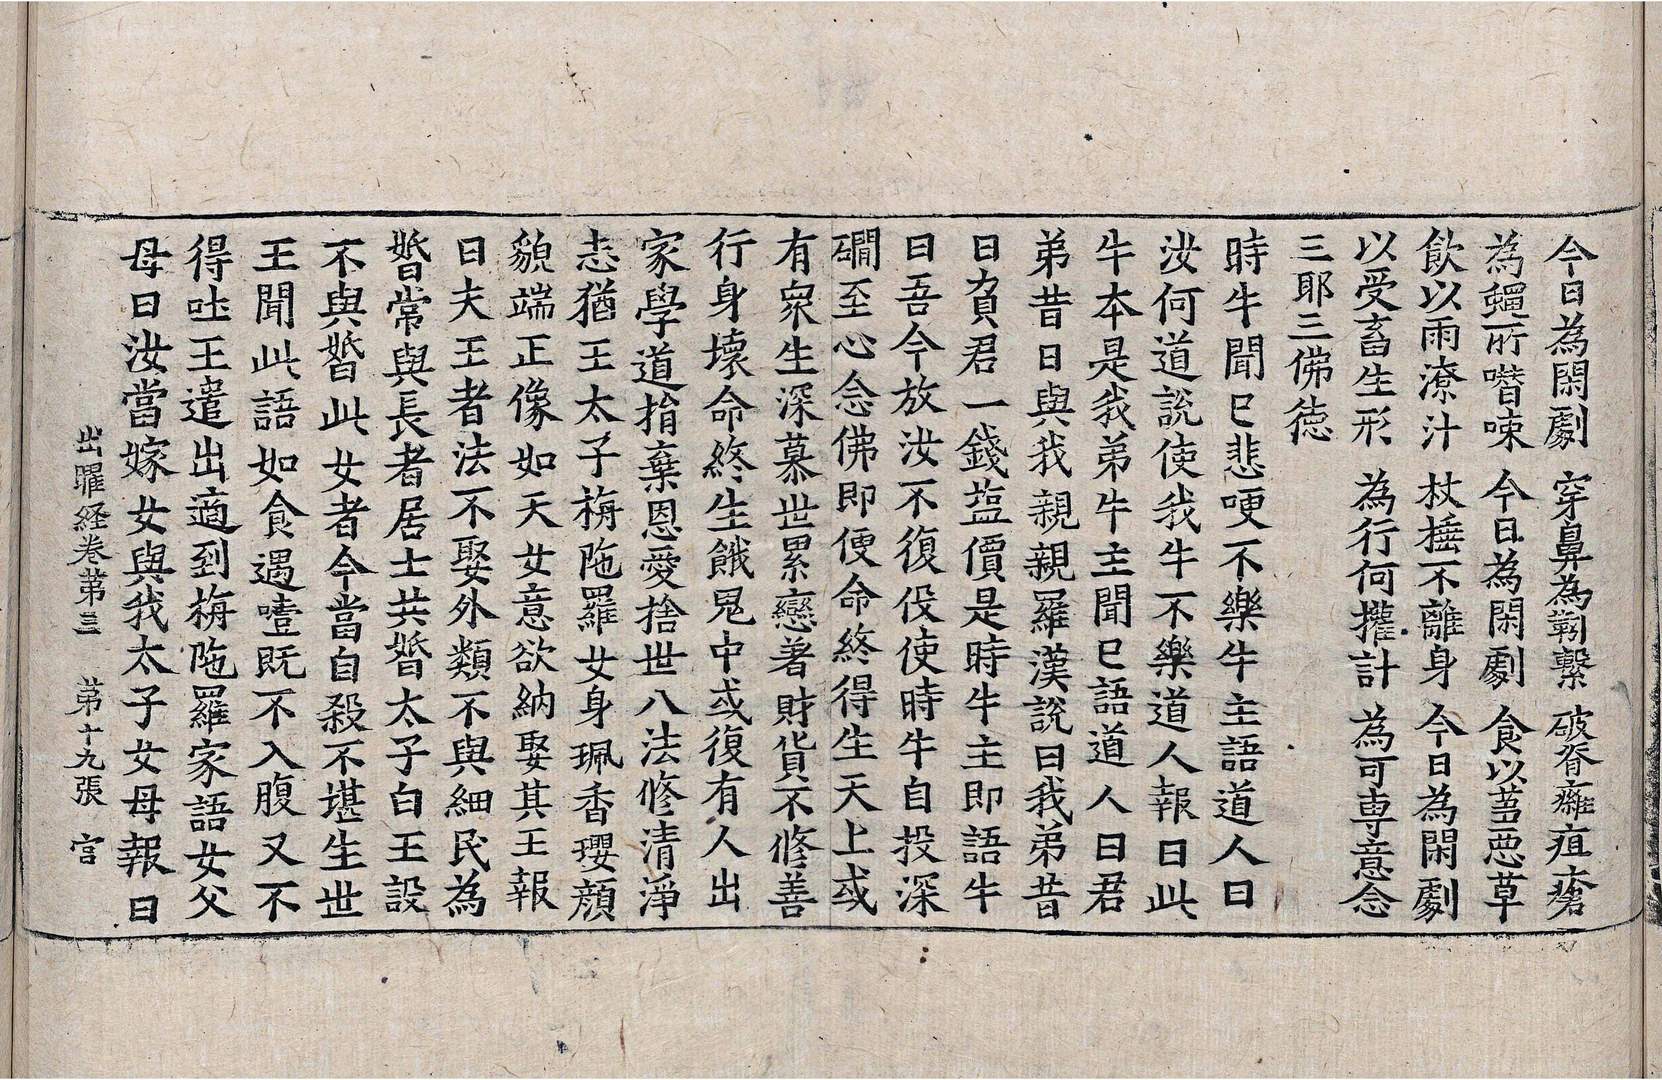 今日為閑劇　穿鼻為𩌏繫　破脊癰疽瘡
為蠅所噆唼　今日為閑劇　食以芻惡草
飲以雨潦汁　杖捶不離身　今日為閑劇
以受畜生形　為行何攉計　為可專意念
三耶三佛德
時牛聞已悲哽不樂牛主語道人曰
汝何道說使我牛不樂道人報曰此
牛本是我弟牛主聞已語道人曰君
弟昔日與我親親羅漢說曰我弟昔
日負君一錢塩價是時牛主即語牛
曰吾今放汝不復伇使時牛自投深
㵎至心念佛即便命終得生天上或
有衆生深慕世累戀著財貨不修善
行身壞命終生餓鬼中或復有人出
家學道捐棄恩愛捨世八法修清淨
志猶王太子栴陁羅女身珮香瓔顔
貌端正像如天女意欲納娶其王報
曰夫王者法不娶外類不與細民為
婚常與長者居士共婚太子白王設
不與婚此女者今當自殺不堪生世
王聞此語如食遇噎既不入腹又不
得吐王遣出適到栴陁羅家語女父
母曰汝當嫁女與我太子女母報曰
出曜経卷第三　第十九張　宫